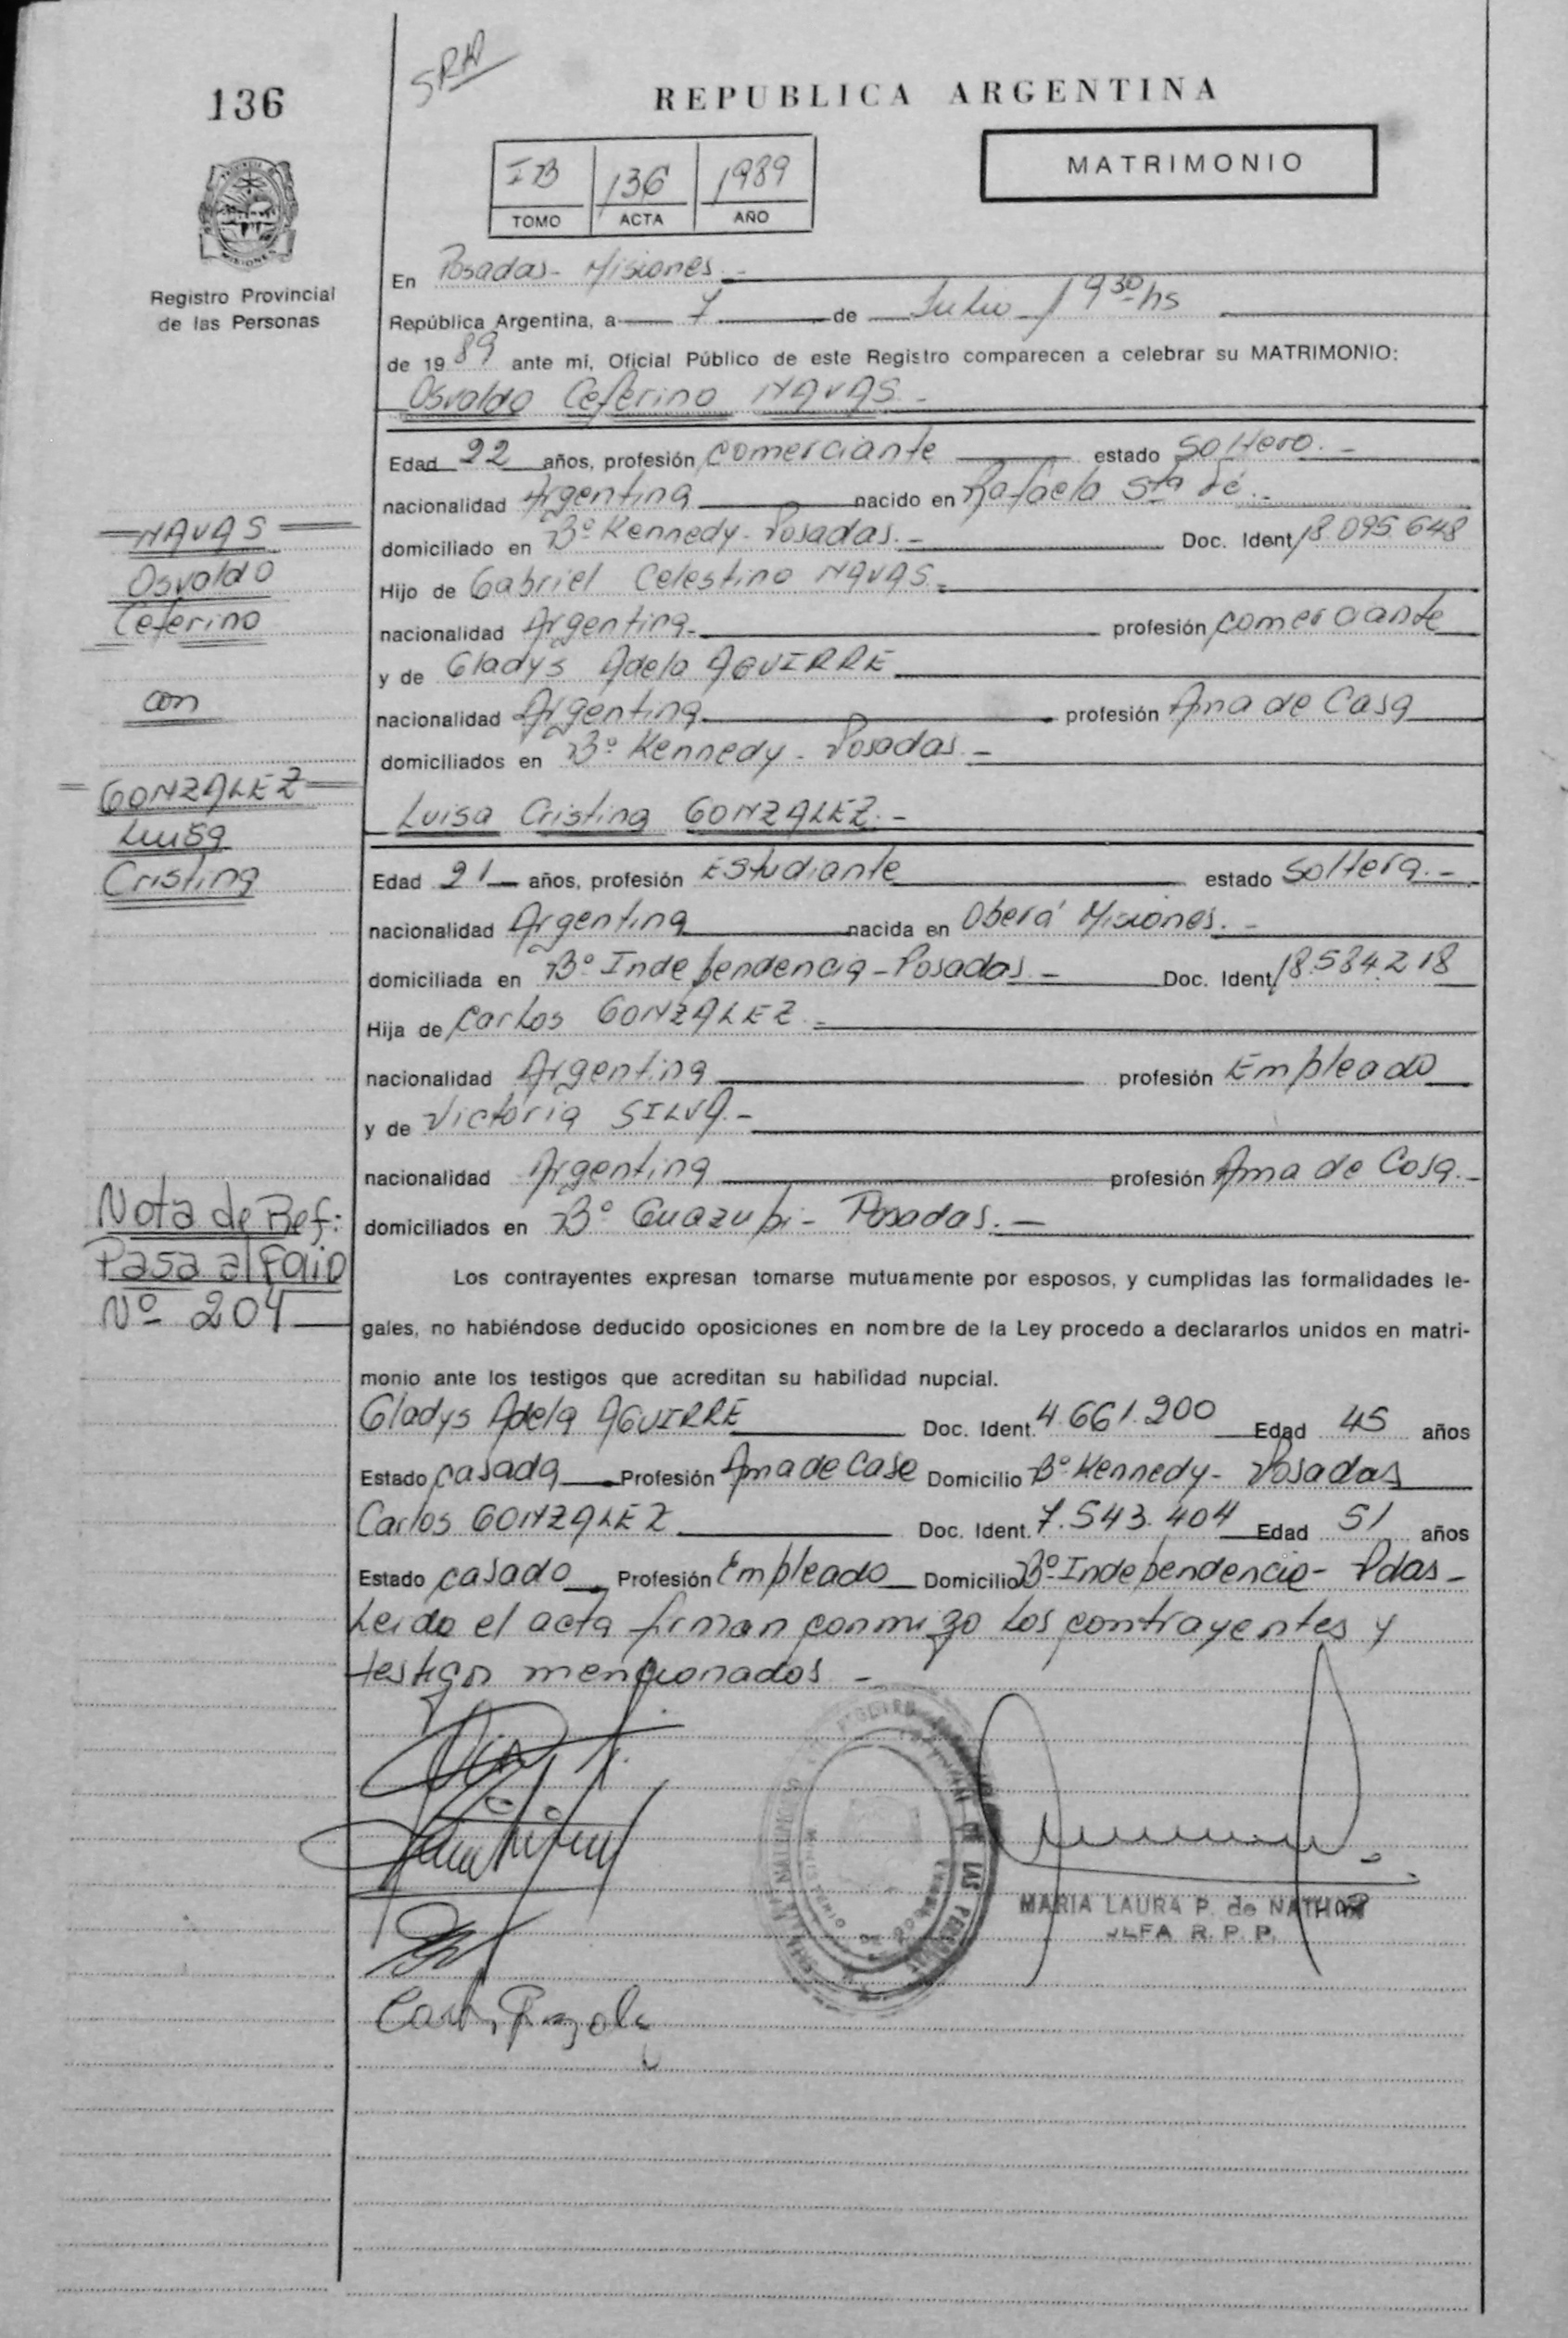 136
SRN
REPUBLICA ARGENTINA
MATRIMONIO
IB 136 1989
TOMO ACTA AÑO
Registro Provincial
de las Personas
En Posadas - Misiones.-
República Argentina, a 7 de Julio / 9 30 hs
de 19 89 ante mí, Oficial Público de este Registro comparecen a celebrar su MATRIMONIO:
Osvaldo Ceferino NAVAS.-
Edad 22 años, profesión comerciante estado soltero.-
nacionalidad Argentina nacido en Rafaela Sta Fé.-
domiciliado en Bº Kennedy - Posadas.- Doc. Ident. 18.095.648
Hijo de Gabriel Celestino NAVAS.-
nacionalidad Argentina.- profesión comerciante
y de Gladys Adela AGUIRRE
nacionalidad Argentina profesión Ama de Casa
domiciliados en Bº Kennedy - Posadas.-
Luisa Cristina GONZALEZ.-
Edad 21 años, profesión Estudiante estado soltera.-
nacionalidad Argentina nacida en Oberá Misiones.-
domiciliada en Bº Independencia - Posadas.- Doc. Ident. 18.584.218
Hija de Carlos GONZALEZ.-
nacionalidad Argentina profesión Empleado
y de Victoria SILVA.-
nacionalidad Argentina profesión Ama de Casa.-
domiciliados en Bº Guazupi - Posadas.-
NAVAS
Osvaldo
Ceferino
con
GONZALEZ
Luisa
Cristina
Nota de Ref:
Pasa al Folio
Nº 204
Los contrayentes expresan tomarse mutuamente por esposos, y cumplidas las formalidades le-
gales, no habiéndose deducido oposiciones en nombre de la Ley procedo a declararlos unidos en matri-
monio ante los testigos que acreditan su habilidad nupcial.
Gladys Adela AGUIRRE Doc. Ident. 4.661.200 Edad 45 años
Estado casada Profesión Ama de Casa Domicilio Bº Kennedy - Posadas
Carlos GONZALEZ Doc. Ident. 7.543.404 Edad 51 años
Estado casado Profesión Empleado Domicilio Bº Independencia - Pdas -
Leida el acta firman conmigo los contrayentes y
testigos mencionados -
MARIA LAURA P. de NATHAN
JEFA R. P. P.